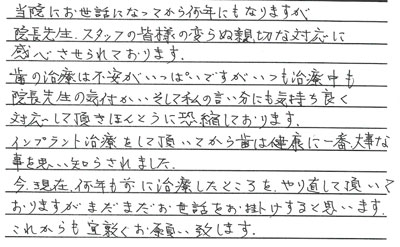 当院にお世話になってから何年にもなりますが
院長先生、スタッフの皆様の変らぬ親切な対応に
感心させられております。
歯の治療は不安がいっぱいですがいつも治療中も
院長先生の気付かい、そして私の言い分にも気持ち良く
対応して頂きほんとうに恐縮しております。
インプラント治療をして頂いてから歯は健康に一番大事な
事を思い知らされました。
今、現在、何年も前に治療したところを、やり直して頂いて
おりますがまだまだお世話をお掛けすると思います。
これからも宜敷くお願い致します。